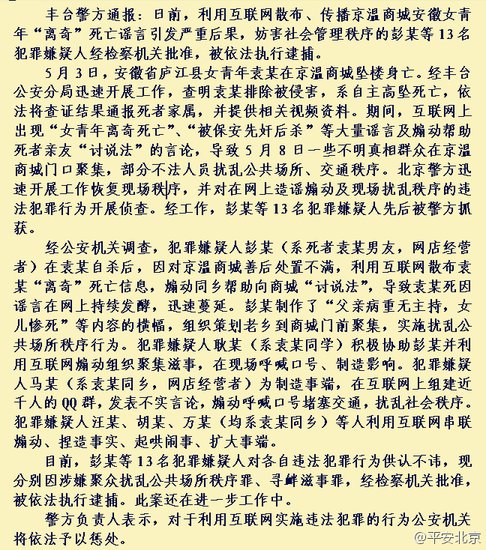 丰台警方通报：日前，利用互联网散布、传播京温商城安徽女青
年“离奇”死亡谣言引发严重后果，妨害社会管理秩序的彭某等13名
犯罪嫌疑人经检察机关批准，被依法执行逮捕。
5月3日，安徽省庐江县女青年袁某在京温商城坠楼身亡。经丰台
公安分局迅速开展工作，查明袁某排除被侵害，系自主高坠死亡，依
法将查证结果通报死者家属，并提供相关视频资料。期间，互联网上
出现“女青年离奇死亡”、“被保安先奸后杀”等大量谣言及煽动帮助
死者亲友“讨说法”的言论，导致5月8日一些不明真相群众在京温
商城门口聚集，部分不法人员扰乱公共场所、交通秩序。北京警方迅
速开展工作恢复现场秩序，并对在网上造谣煽动及现场扰乱秩序的违
法犯罪行为开展侦查。经工作，彭某等13名犯罪嫌疑人先后被警方抓
获。
经公安机关调查，犯罪嫌疑人彭某（系死者袁某男友，网店经营
者）在袁某自杀后，因对京温商城善后处置不满，利用互联网散布袁
某“离奇”死亡信息，煽动同乡帮助向商城“讨说法”，导致袁某死因
谣言在网上持续发酵，迅速蔓延。彭某制作了“父亲病重无主持，女
儿惨死”等内容的横幅，组织策划老乡到商城门前聚集，实施扰乱公
共场所秩序行为。犯罪嫌疑人耿某（系袁某同学）积极协助彭某并利
用互联网煽动组织聚集滋事，在现场呼喊口号、制造影响。犯罪嫌疑
人马某（系袁某同乡，网店经营者）为制造事端，在互联网上组建近
千人的QQ群，发表不实言论，煽动呼喊口号堵塞交通，扰乱社会秩序。
犯罪嫌疑人汪某、胡某、万某（均系袁某同乡）等人利用互联网串联
煽动、捏造事实、起哄闹事、扩大事端。
目前，彭某等13名犯罪嫌疑人对各自违法犯罪行为供认不讳，现
分别因涉嫌聚众扰乱公共场所秩序罪、寻衅滋事罪，经检察机关批准，
被依法执行逮捕。此案还在进一步工作中。
警方负责人表示，对于利用互联网实施违法犯罪的行为公安机关
将依法予以惩处。
@平安北京